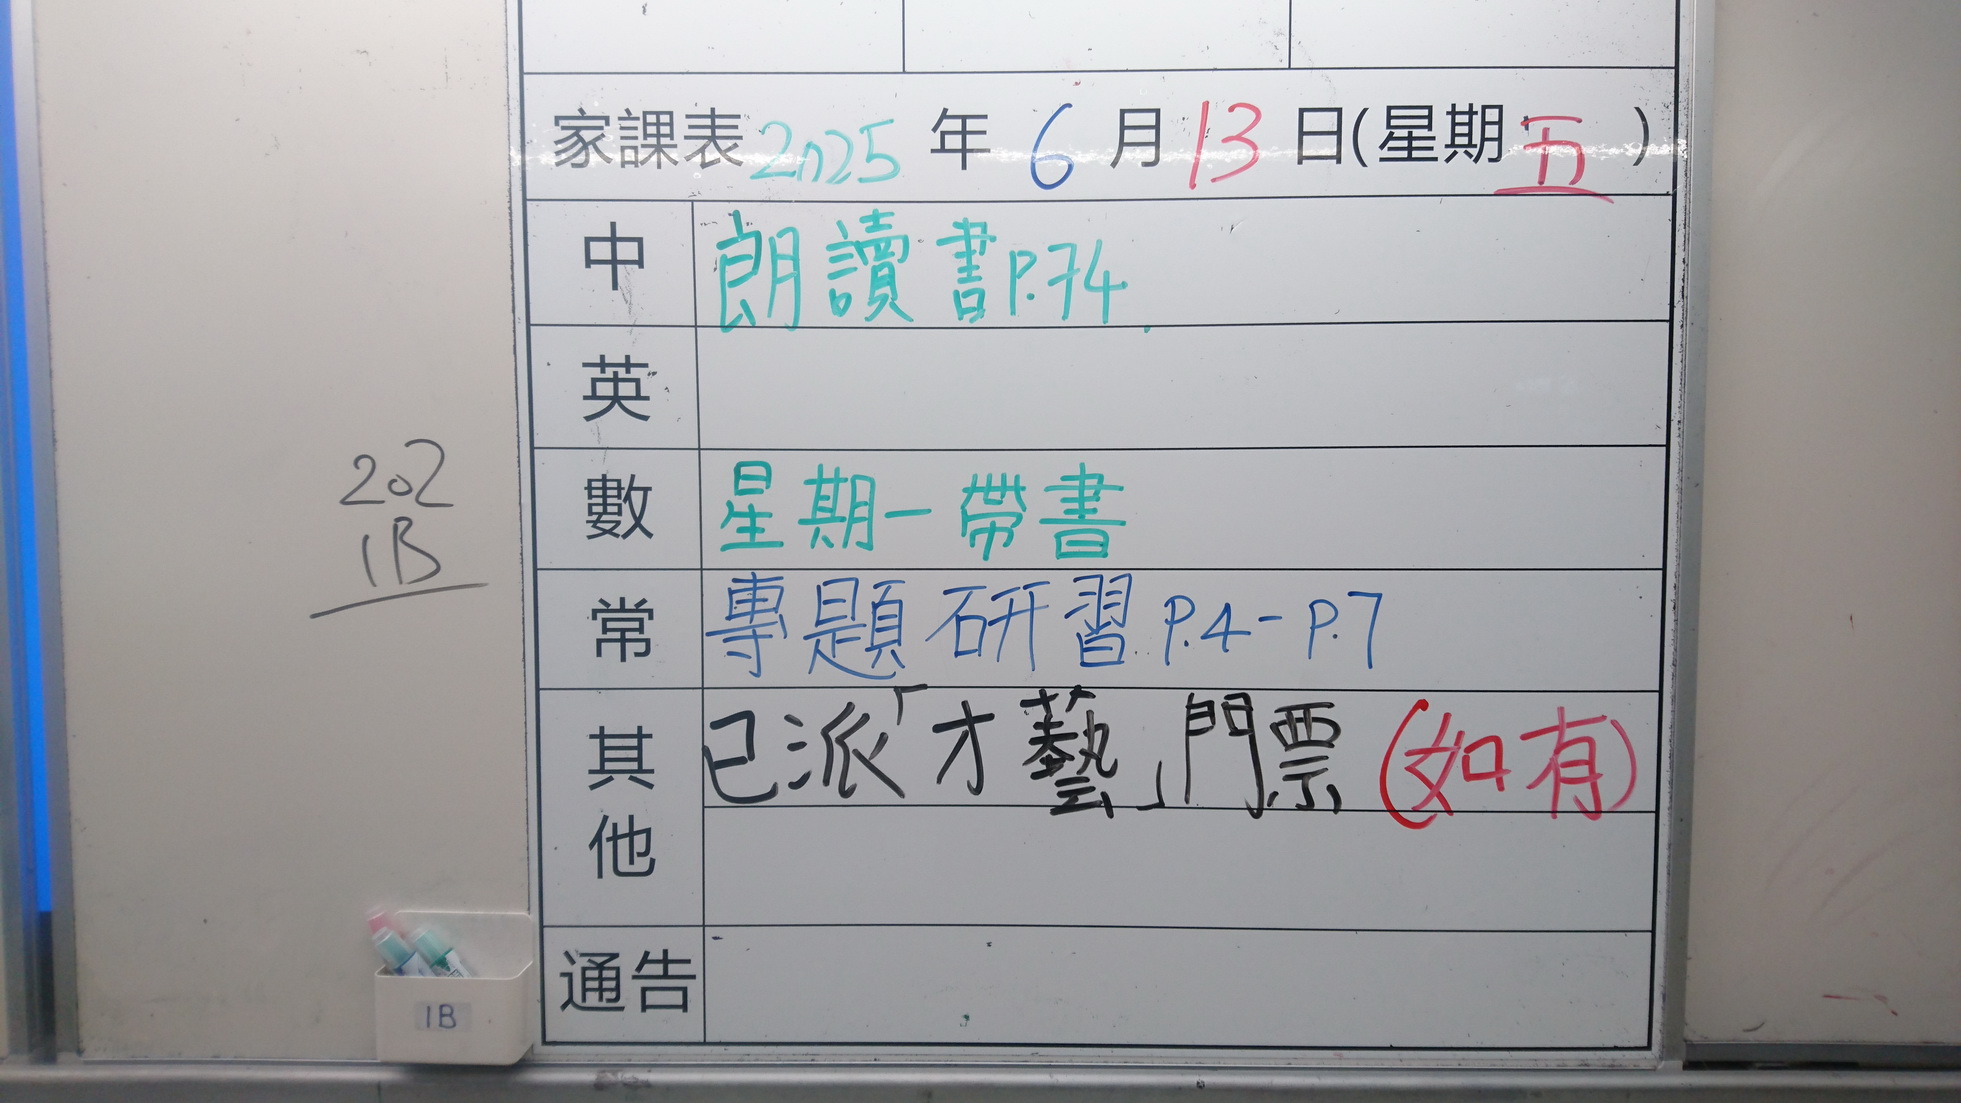 家課表 2025 年 6 月 13 日(星期五)
中 朗讀書P.74.
英
數 星期一帶書
常 專題研習P.4-P.7
其他 已派「才藝」門票(如有)
通告
202
1B
1B